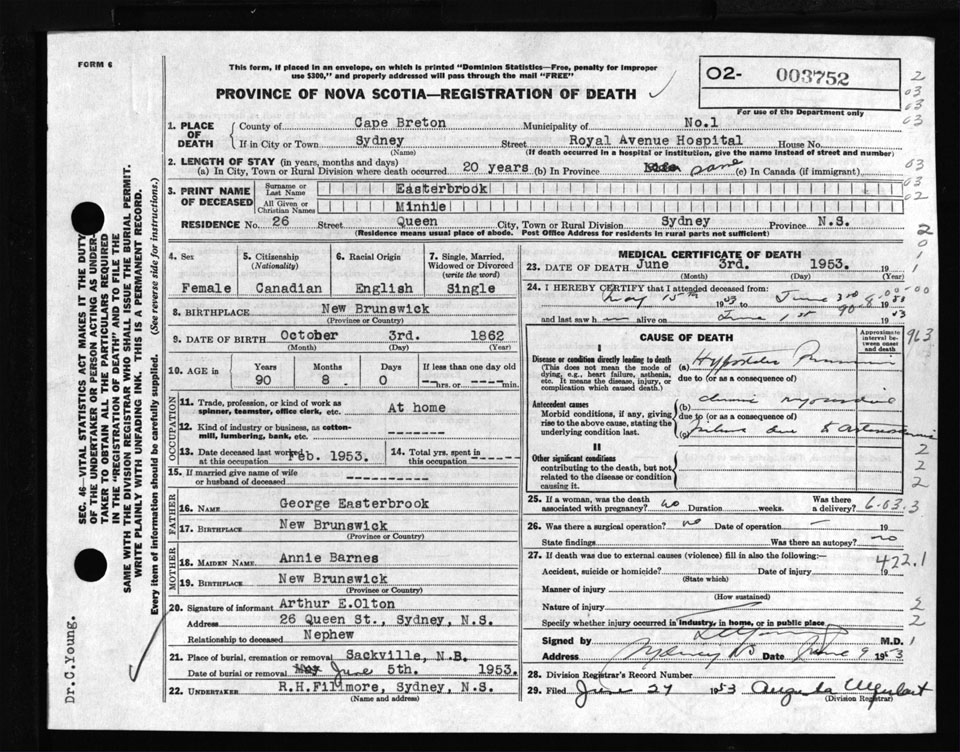 FORM 6
This form, if placed in an envelope, on which is printed "Dominion Statistics—Free, penalty for improper
use $300," and properly addressed will pass through the mail "FREE"
PROVINCE OF NOVA SCOTIA—REGISTRATION OF DEATH
O2- 003752
For use of the Department only
1. PLACE OF DEATH { County of Cape Breton Municipality of No.1
If in City or Town Sydney Street Royal Avenue Hospital House No.
(Name) (If death occurred in a hospital or institution, give the name instead of street and number)
2. LENGTH OF STAY (in years, months and days)
(a) In City, Town or Rural Division where death occurred 20 years (b) In Province same (c) In Canada (if immigrant)
3. PRINT NAME OF DECEASED { Surname or Last Name Easterbrook
All Given or Christian Names Minnie
RESIDENCE No. 26 Street Queen City, Town or Rural Division Sydney Province N.S.
(Residence means usual place of abode. Post Office Address for residents in rural parts not sufficient)
4. Sex 5. Citizenship (Nationality) 6. Racial Origin 7. Single, Married, Widowed or Divorced (write the word)
Female Canadian English Single
8. BIRTHPLACE New Brunswick
(Province or Country)
9. DATE OF BIRTH October 3rd. 1862
(Month) (Day) (Year)
10. AGE in Years Months Days If less than one day old
90 8 0 --hrs. or ---min.
OCCUPATION
11. Trade, profession, or kind of work as spinner, teamster, office clerk, etc. At home
12. Kind of industry or business, as cotton-mill, lumbering, bank, etc. -------
13. Date deceased last worked at this occupation Feb. 1953. 14. Total yrs. spent in this occupation -----
15. If married give name of wife or husband of deceased ----------
FATHER
16. NAME George Easterbrook
17. BIRTHPLACE New Brunswick
(Province or Country)
MOTHER
18. MAIDEN NAME Annie Barnes
19. BIRTHPLACE New Brunswick
(Province or Country)
20. Signature of informant Arthur E.Olton
Address 26 Queen St., Sydney, N.S.
Relationship to deceased Nephew
21. Place of burial, cremation or removal Sackville, N.B.
Date of burial or removal June 5th. 1953.
22. UNDERTAKER R.H.Fillmore, Sydney, N.S.
(Name and address)
MEDICAL CERTIFICATE OF DEATH
23. DATE OF DEATH June 3rd. 1953. 19
(Month) (Day) (Year)
24. I HEREBY CERTIFY that I attended deceased from:
May 15th 1953 to June 3rd 1953
and last saw h alive on June 1st 1953
CAUSE OF DEATH
Approximate interval between onset and death
I
Disease or condition directly leading to death
(This does not mean the mode of dying, e.g., heart failure, asthenia, etc. It means the disease, injury, or complication which caused death.)
(a)
due to (or as a consequence of)
Antecedent causes
Morbid conditions, if any, giving rise to the above cause, stating the underlying condition last.
(b) chronic myocardial
due to (or as a consequence of)
(c) failure due to
II
Other significant conditions
contributing to the death, but not related to the disease or condition causing it.
25. If a woman, was the death associated with pregnancy? no Duration weeks. Was there a delivery?
26. Was there a surgical operation? no Date of operation – 19
State findings Was there an autopsy? no
27. If death was due to external causes (violence) fill in also the following:—
Accident, suicide or homicide? Date of injury 19
(State which)
Manner of injury
(How sustained)
Nature of injury
Specify whether injury occurred in industry, in home, or in public place
Signed by M.D.
Address Sydney NS Date June 9 1953
28. Division Registrar's Record Number
29. Filed June 27 1953 Augusta
(Division Registrar)
422.1
963
SEC. 46—VITAL STATISTICS ACT MAKES IT THE DUTY
OF THE UNDERTAKER OR PERSON ACTING AS UNDER-
TAKER TO OBTAIN ALL THE PARTICULARS REQUIRED
IN THE "REGISTRATION OF DEATH" AND TO FILE THE
SAME WITH THE DIVISION REGISTRAR WHO SHALL ISSUE THE BURIAL PERMIT.
WRITE PLAINLY WITH UNFADING INK. THIS IS A PERMANENT RECORD.
Every item of information should be carefully supplied. (See reverse side for instructions.)
Dr.C.Young.